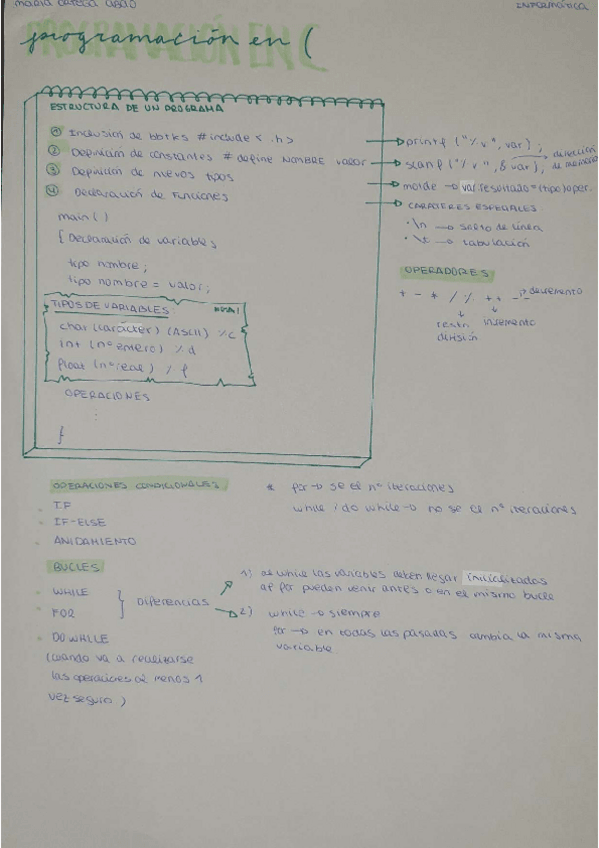 INFORMÁTICA
programación en C
PROGRAMACIÓN EN C
ESTRUCTURA DE UN PROGRAMA
1 Inclusión de #include < .h>
2 Definición de constantes #define NOMBRE valor
3 Definición de nuevos tipos
4 Declaración de funciones
main()
{ Declaración de variables
tipo nombre;
tipo nombre = valor;
TIPOS DE VARIABLES:
char (carácter) (ASCII) %c
int (nº entero) %d
float (nº real) % f
OPERACIONES
:
}
→ printf ("%v", var);
→ scanf ("%v", &var); → dirección de memoria
→ molde → var.resultado = (tipo) oper.
→ CARACTERES ESPECIALES
· \n → salto de línea
· \t → tabulación
OPERADORES
+ - * / % ++ -- → decremento
resto división
incremento
OPERACIONES CONDICIONALES
· IF
· IF-ELSE
· ANIDAMIENTO
* for → se el nº iteraciones
while / do while → no se el nº iteraciones
BUCLES
· WHILE
· FOR
} Diferencias
· DO WHILE
(cuando va a realizarse
las operaciones al menos 1
vez seguro)
1) al while las variables deben llegar inicializadas
al for pueden venir antes o en el mismo bucle
2) while → siempre
for → en todas las pasadas cambia la misma
variable.